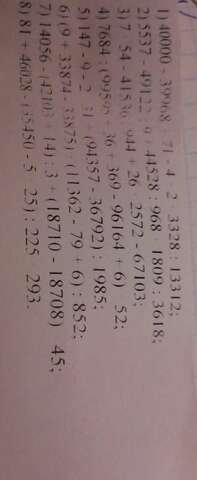 1) 40000 - 39968 : 74 · 4 · 2 · 3328 : 13312;
2) 5537 - 49122 : 9 + 44528 : 968 · 1809 : 3618;
3) 7 · 54 - 41536 : 944 + 26 · 2572 - 67103;
4) 7684 : (99595 - 36 + 369 - 96164 + 6) · 52;
5) 147 - 9 · 2 · 31 · (94357 - 36792) : 1985;
6) (9 + 33874 - 33875) · (11362 - 79 + 6) : 852;
7) 14056 - (42103 + 14) : 3 + (18710 - 18708) · 45;
8) 81 + 46028 - (35450 - 5 · 25) : 225 · 293.